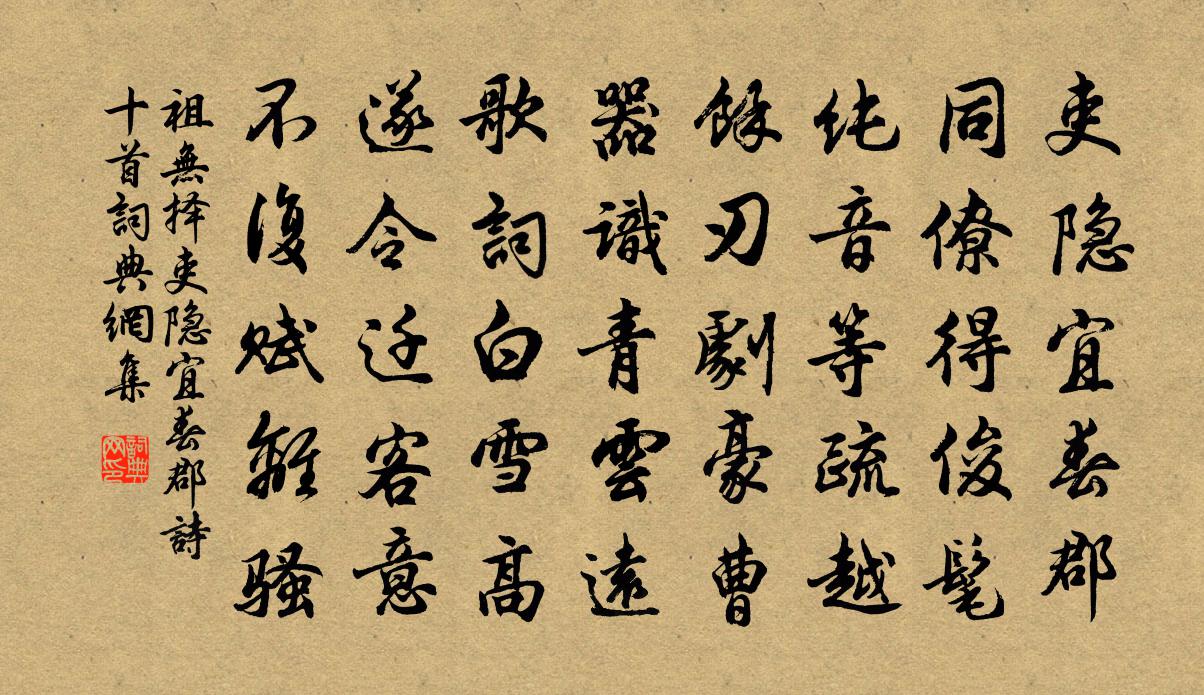 吏隐宜春郡
同僚得俊髦
纯音等疏越
餘刃劇豪曹
器識青雲遠
歌詞白雪高
遂令迁客意
不復赋離騷
祖無择吏隐宜春郡詩
十首詞典網集
詞典网印